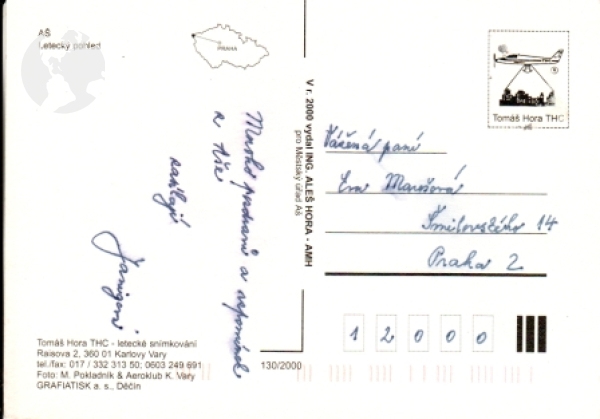 AŠ
Letecký pohled
PRAHA
Mnoho pozdravů a vzpomínek
z Aše
zasílají
V r. 2000 vydal ING. ALEŠ HORA - AMH
pro Městský úřad Aš
THC
Tomáš Hora THC
Vážená paní
Eva Marešová
Šmilovského 14
Praha 2
1 2 0 0 0
Tomáš Hora THC - letecké snímkování
Raisova 2, 360 01 Karlovy Vary
tel./fax: 017 / 332 313 50; 0603 249 691
Foto: M. Pokladník & Aeroklub K. Vary
GRAFIATISK a. s., Děčín
130/2000